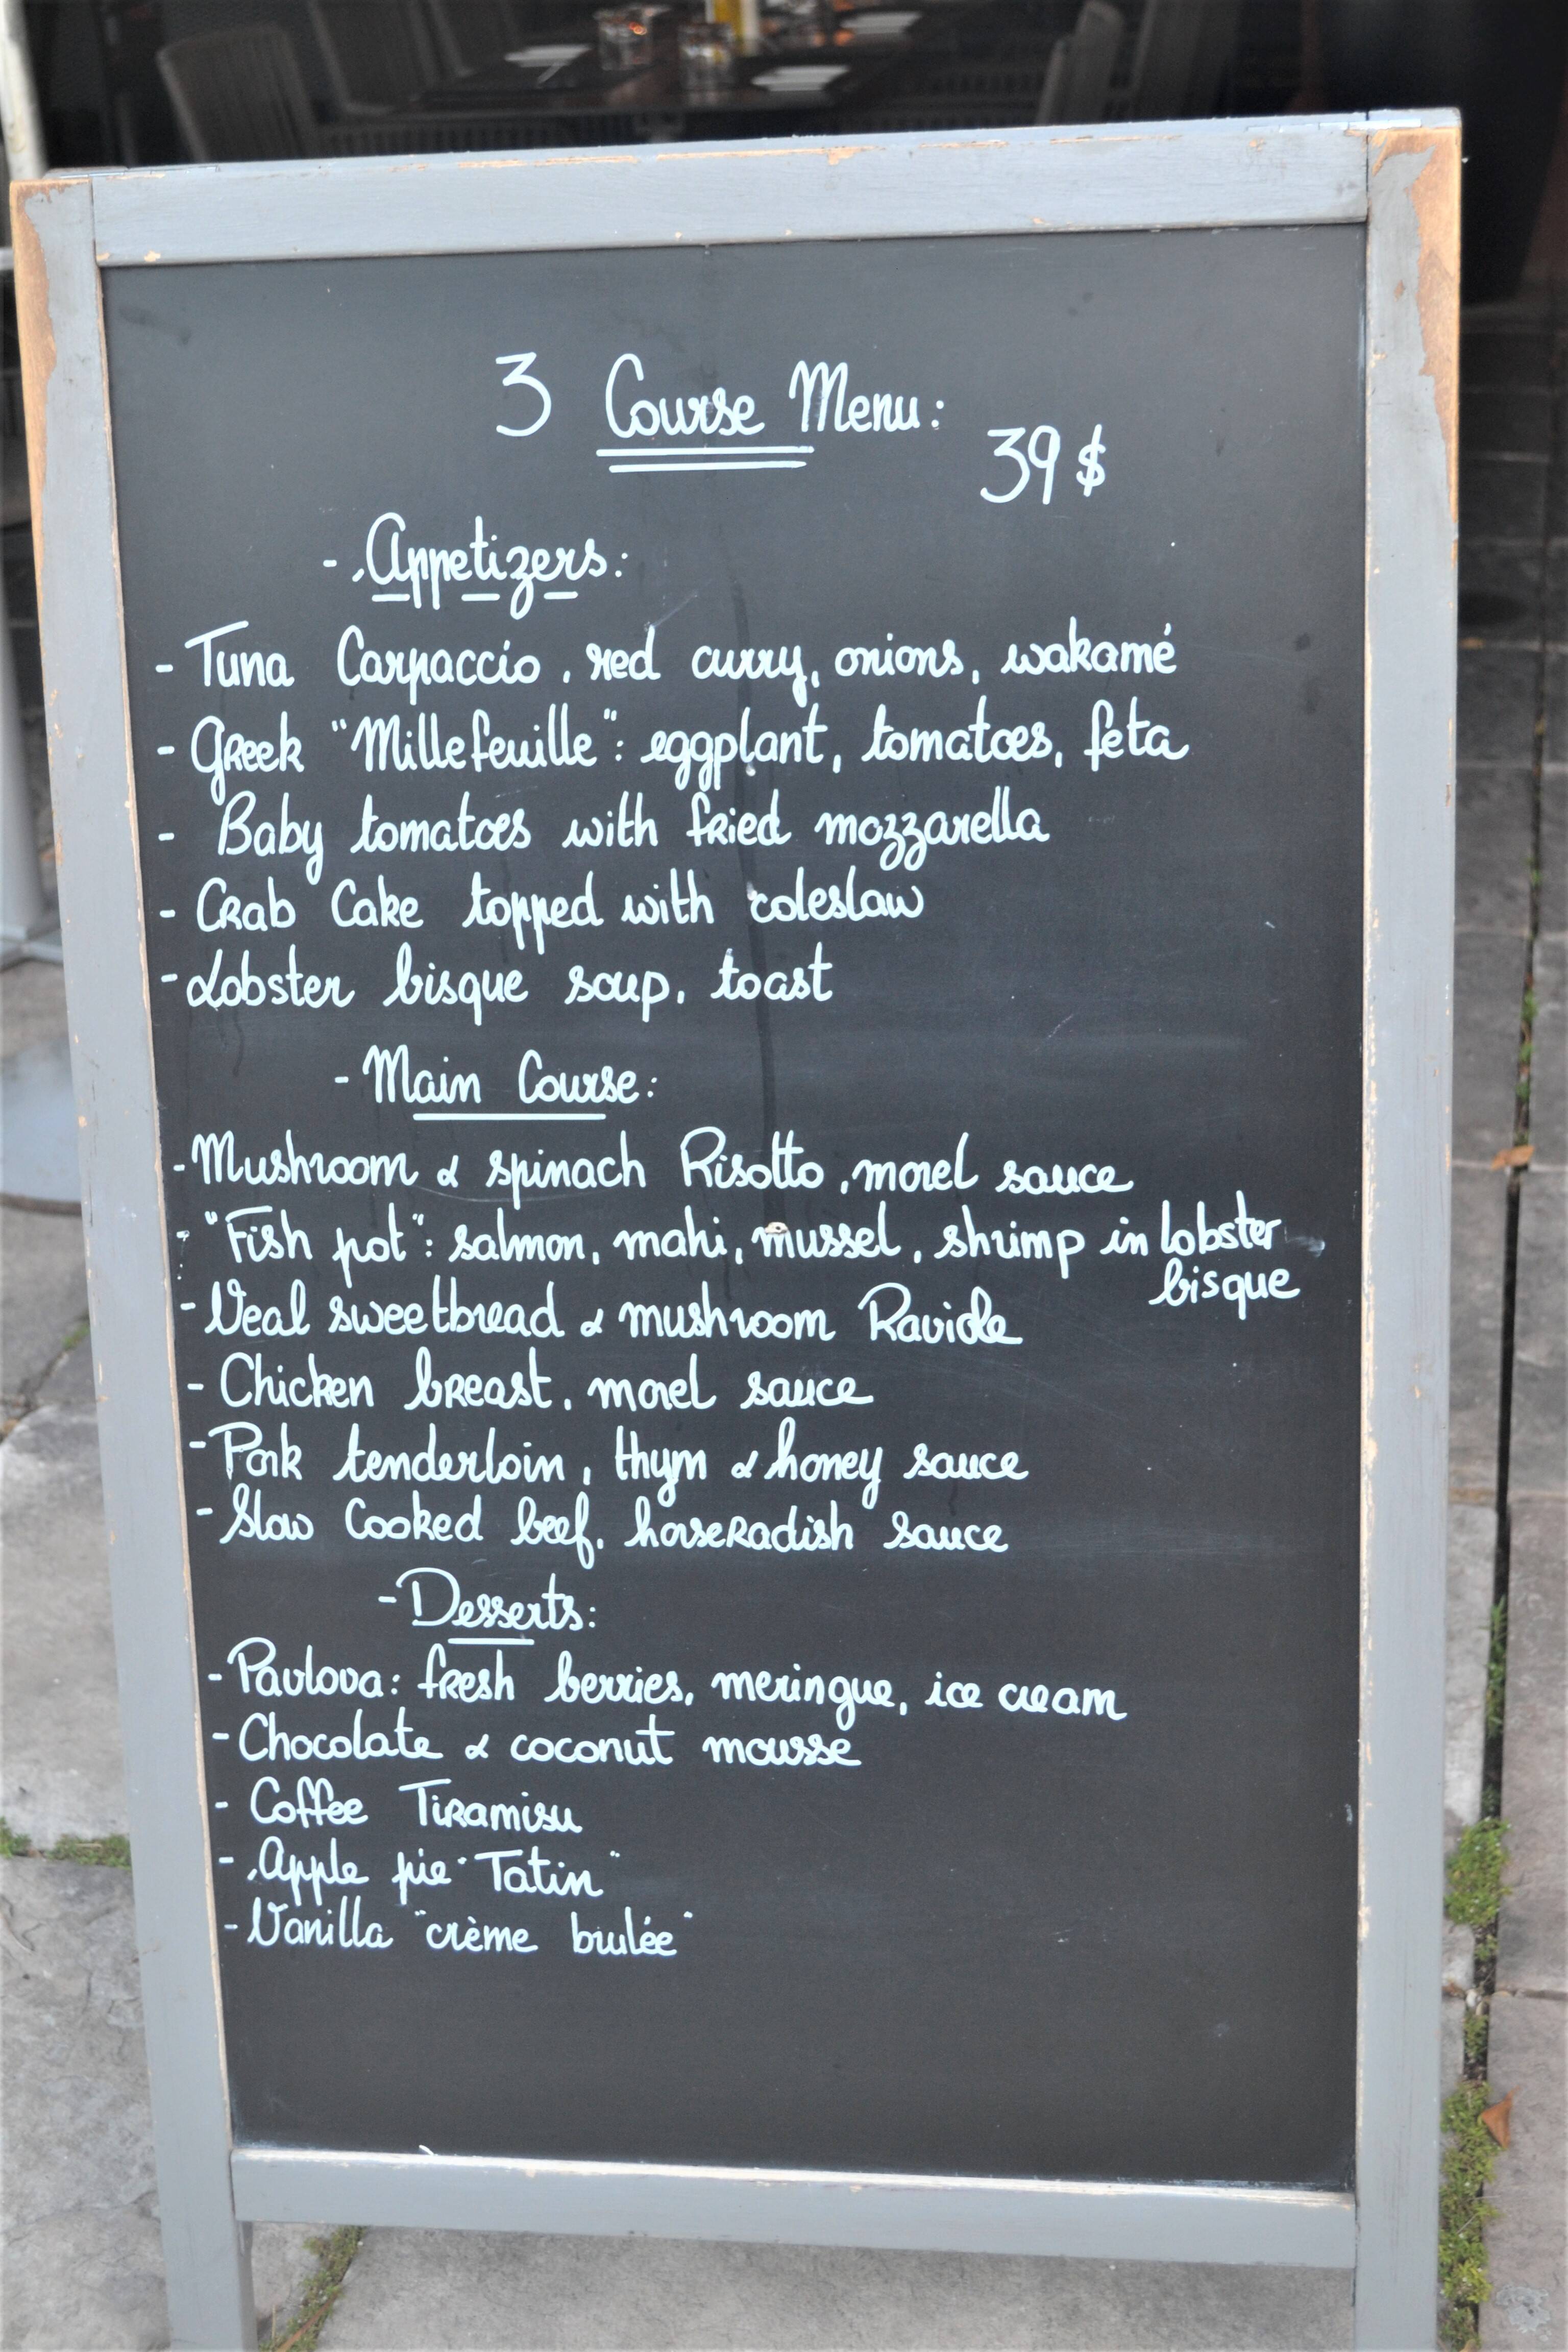 3 Course Menu:
39 $
- Appetizers:
- Tuna Carpaccio, red curry, onions, wakamé
- Greek "Millefeuille": eggplant, tomatoes, feta
- Baby tomatoes with fried mozzarella
- Crab Cake topped with coleslaw
- Lobster bisque soup, toast
- Main Course:
- Mushroom & spinach Risotto, morel sauce
- "Fish pot": salmon, mahi, mussel, shrimp in lobster
bisque
- Veal sweetbread & mushroom Raviole
- Chicken breast, morel sauce
- Pork tenderloin, thym & honey sauce
- Slow Cooked beef, horseradish sauce
- Desserts:
- Pavlova: fresh berries, meringue, ice cream
- Chocolate & coconut mousse
- Coffee Tiramisu
- Apple pie "Tatin"
- Vanilla "crème brulée"